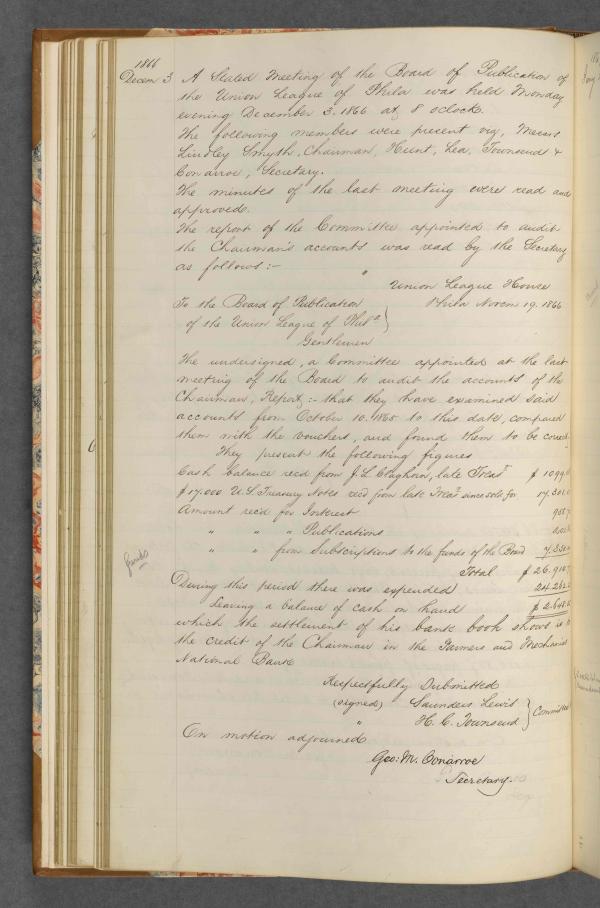 1866
Decem 3 A Stated Meeting of the Board of Publication of
the Union League of Phila was held Monday
evening December 3. 1866 at 8 oclock.
The following members were present viz, Messrs
Lindley Smyth, Chairman, Hunt, Lea, Townsend &
Conarroe, Secretary.
The minutes of the last meeting were read and
approved.
The report of the Committee appointed to audit
the Chairman's accounts was read by the Secretary
as follows:-
Union League House
To the Board of Publication Phila Novem 19. 1866
of the Union League of Phila }
Gentlemen
The undersigned, a Committee appointed at the last
meeting of the Board to audit the accounts of the
Chairman, Report,:- that they have examined said
accounts from October 10. 1865 to this date, compared
them with the vouchers, and found them to be correct
They present the following figures
Cash balance recd from J. L. Claghorn, late Treasr $ 1099.
$17.000 U.S. Treasury Notes recd from late Treasr since sold for 17.301.
Amount rec'd for Interest
" " " Publications
" " from Subscriptions to the funds of the Board
Total $ 26.9
funds
During this period there was expended 24.262.
Leaving a balance of cash on hand $ 2.6
which the settlement of his bank book shows is to
the credit of the Chairman in the Farmers and Mechanics
National Bank
Respectfully Submitted
(signed) Saunders Lewis
" H. C. Townsend } Committee
On motion adjourned
Geo: M. Conarroe
Secretary.